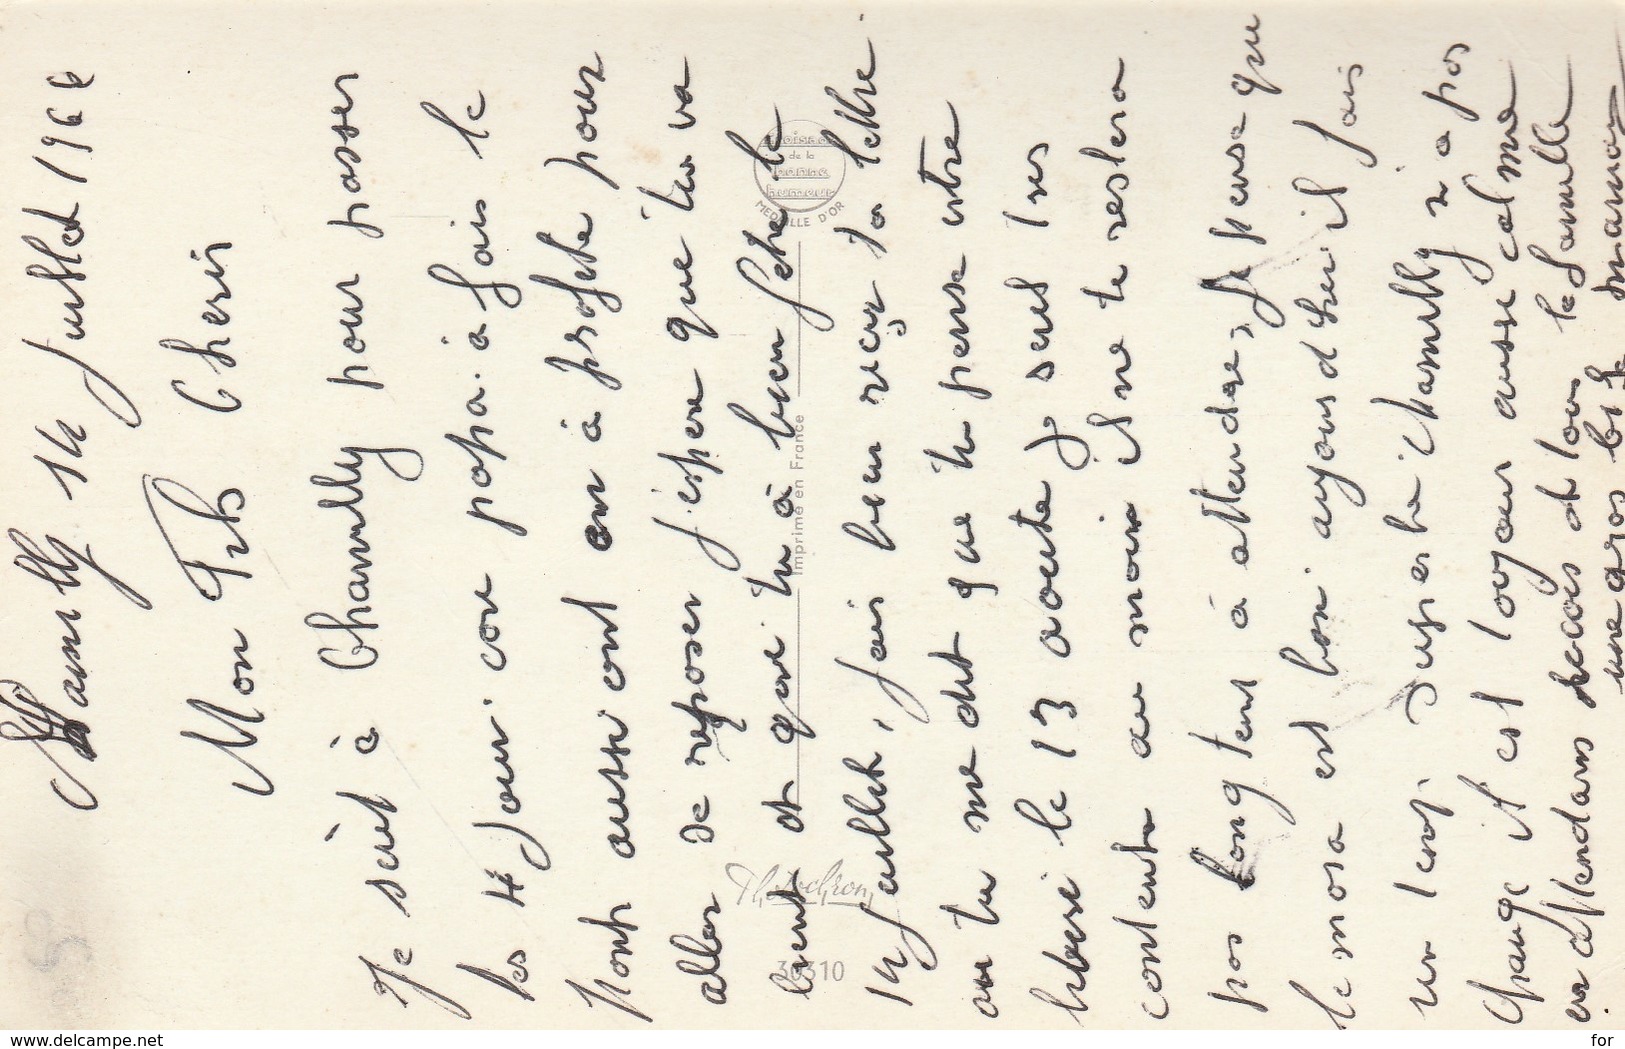 Chamilly 14 Juillet 1966
Mon Fils Cheris
Je suit à Chamilly pour passer
les 4 Jour. con papa. à fais le
Pont aussi ont en à profite pour
aller se reposer J'espere que tu va
bient et que tu à bien fete le
14 Juillet, J'ai bien reçu ta lettre
ou tu me dit que tu pense etre
liberé le 13 aoute Je sent tres
contente au moin il ne te restera
pas long tent à attendre, Je pense que
le mora est bon aujourd'hui il fais
un temp. superbe Chamilly n a pas
change il est toujour aussi calme
en attendans recois de tous la famille
une gros bise maman
Imprimé en France
Croisade
de la
bonne
humeur
MEDAILLE D'OR
30310
www.delcampe.net
for